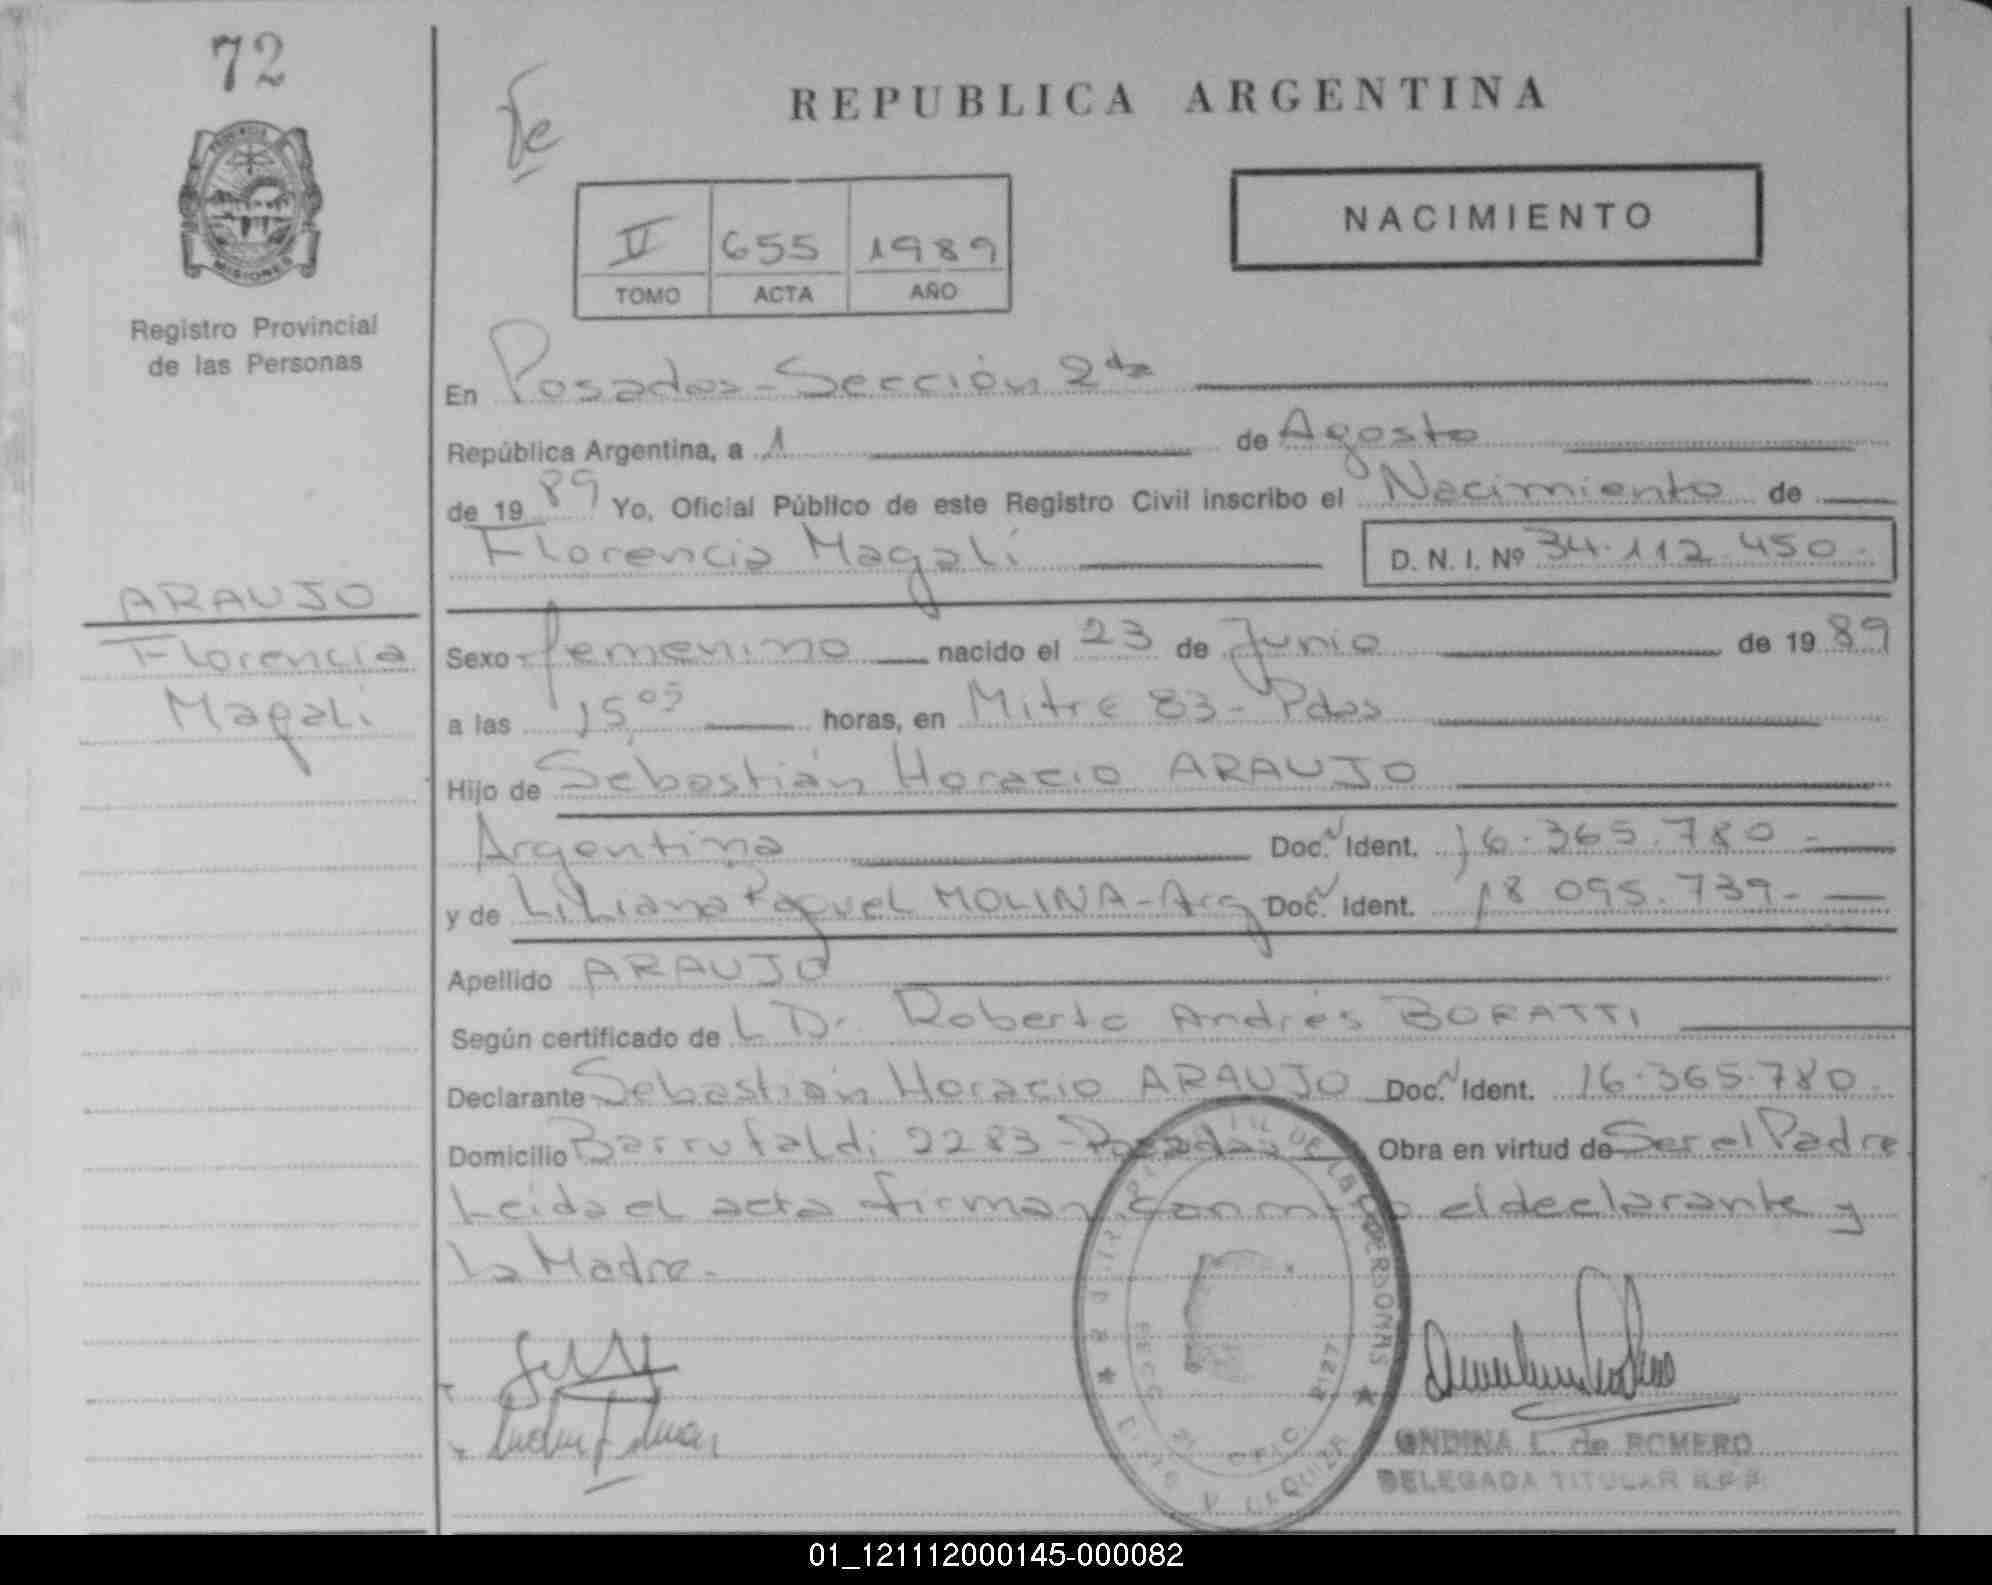 72
REPUBLICA ARGENTINA
MISIONES
Registro Provincial
de las Personas
NACIMIENTO
II 655 1989
TOMO ACTA AÑO
En Posadas - Sección 2da
República Argentina, a 1 de Agosto
de 1989 Yo, Oficial Público de este Registro Civil inscribo el Nacimiento de
Florencia Magalí D. N. I. Nº 34.112.450.
ARAUJO
Florencia
Magalí
Sexo femenino nacido el 23 de Junio de 1989
a las 15 05 horas, en Mitre 83 - Pdas
Hijo de Sebastián Horacio ARAUJO
Argentina Doc. Ident. 16.365.780.-
y de Liliana Raquel MOLINA - Arg Doc. Ident. 18 095.739-
Apellido ARAUJO
Según certificado de L Dr. Roberto Andrés BORATTI
Declarante Sebastián Horacio ARAUJO Doc. Ident. 16.365.780.
Domicilio Barrufaldi 2283 - Posadas Obra en virtud de Ser el Padre
Leida el acta firman conmigo el declarante y
la Madre.-
PERSONAS
R127
ONDINA L. de ROMERO
DELEGADA TITULAR R.P.P.
01_121112000145-000082